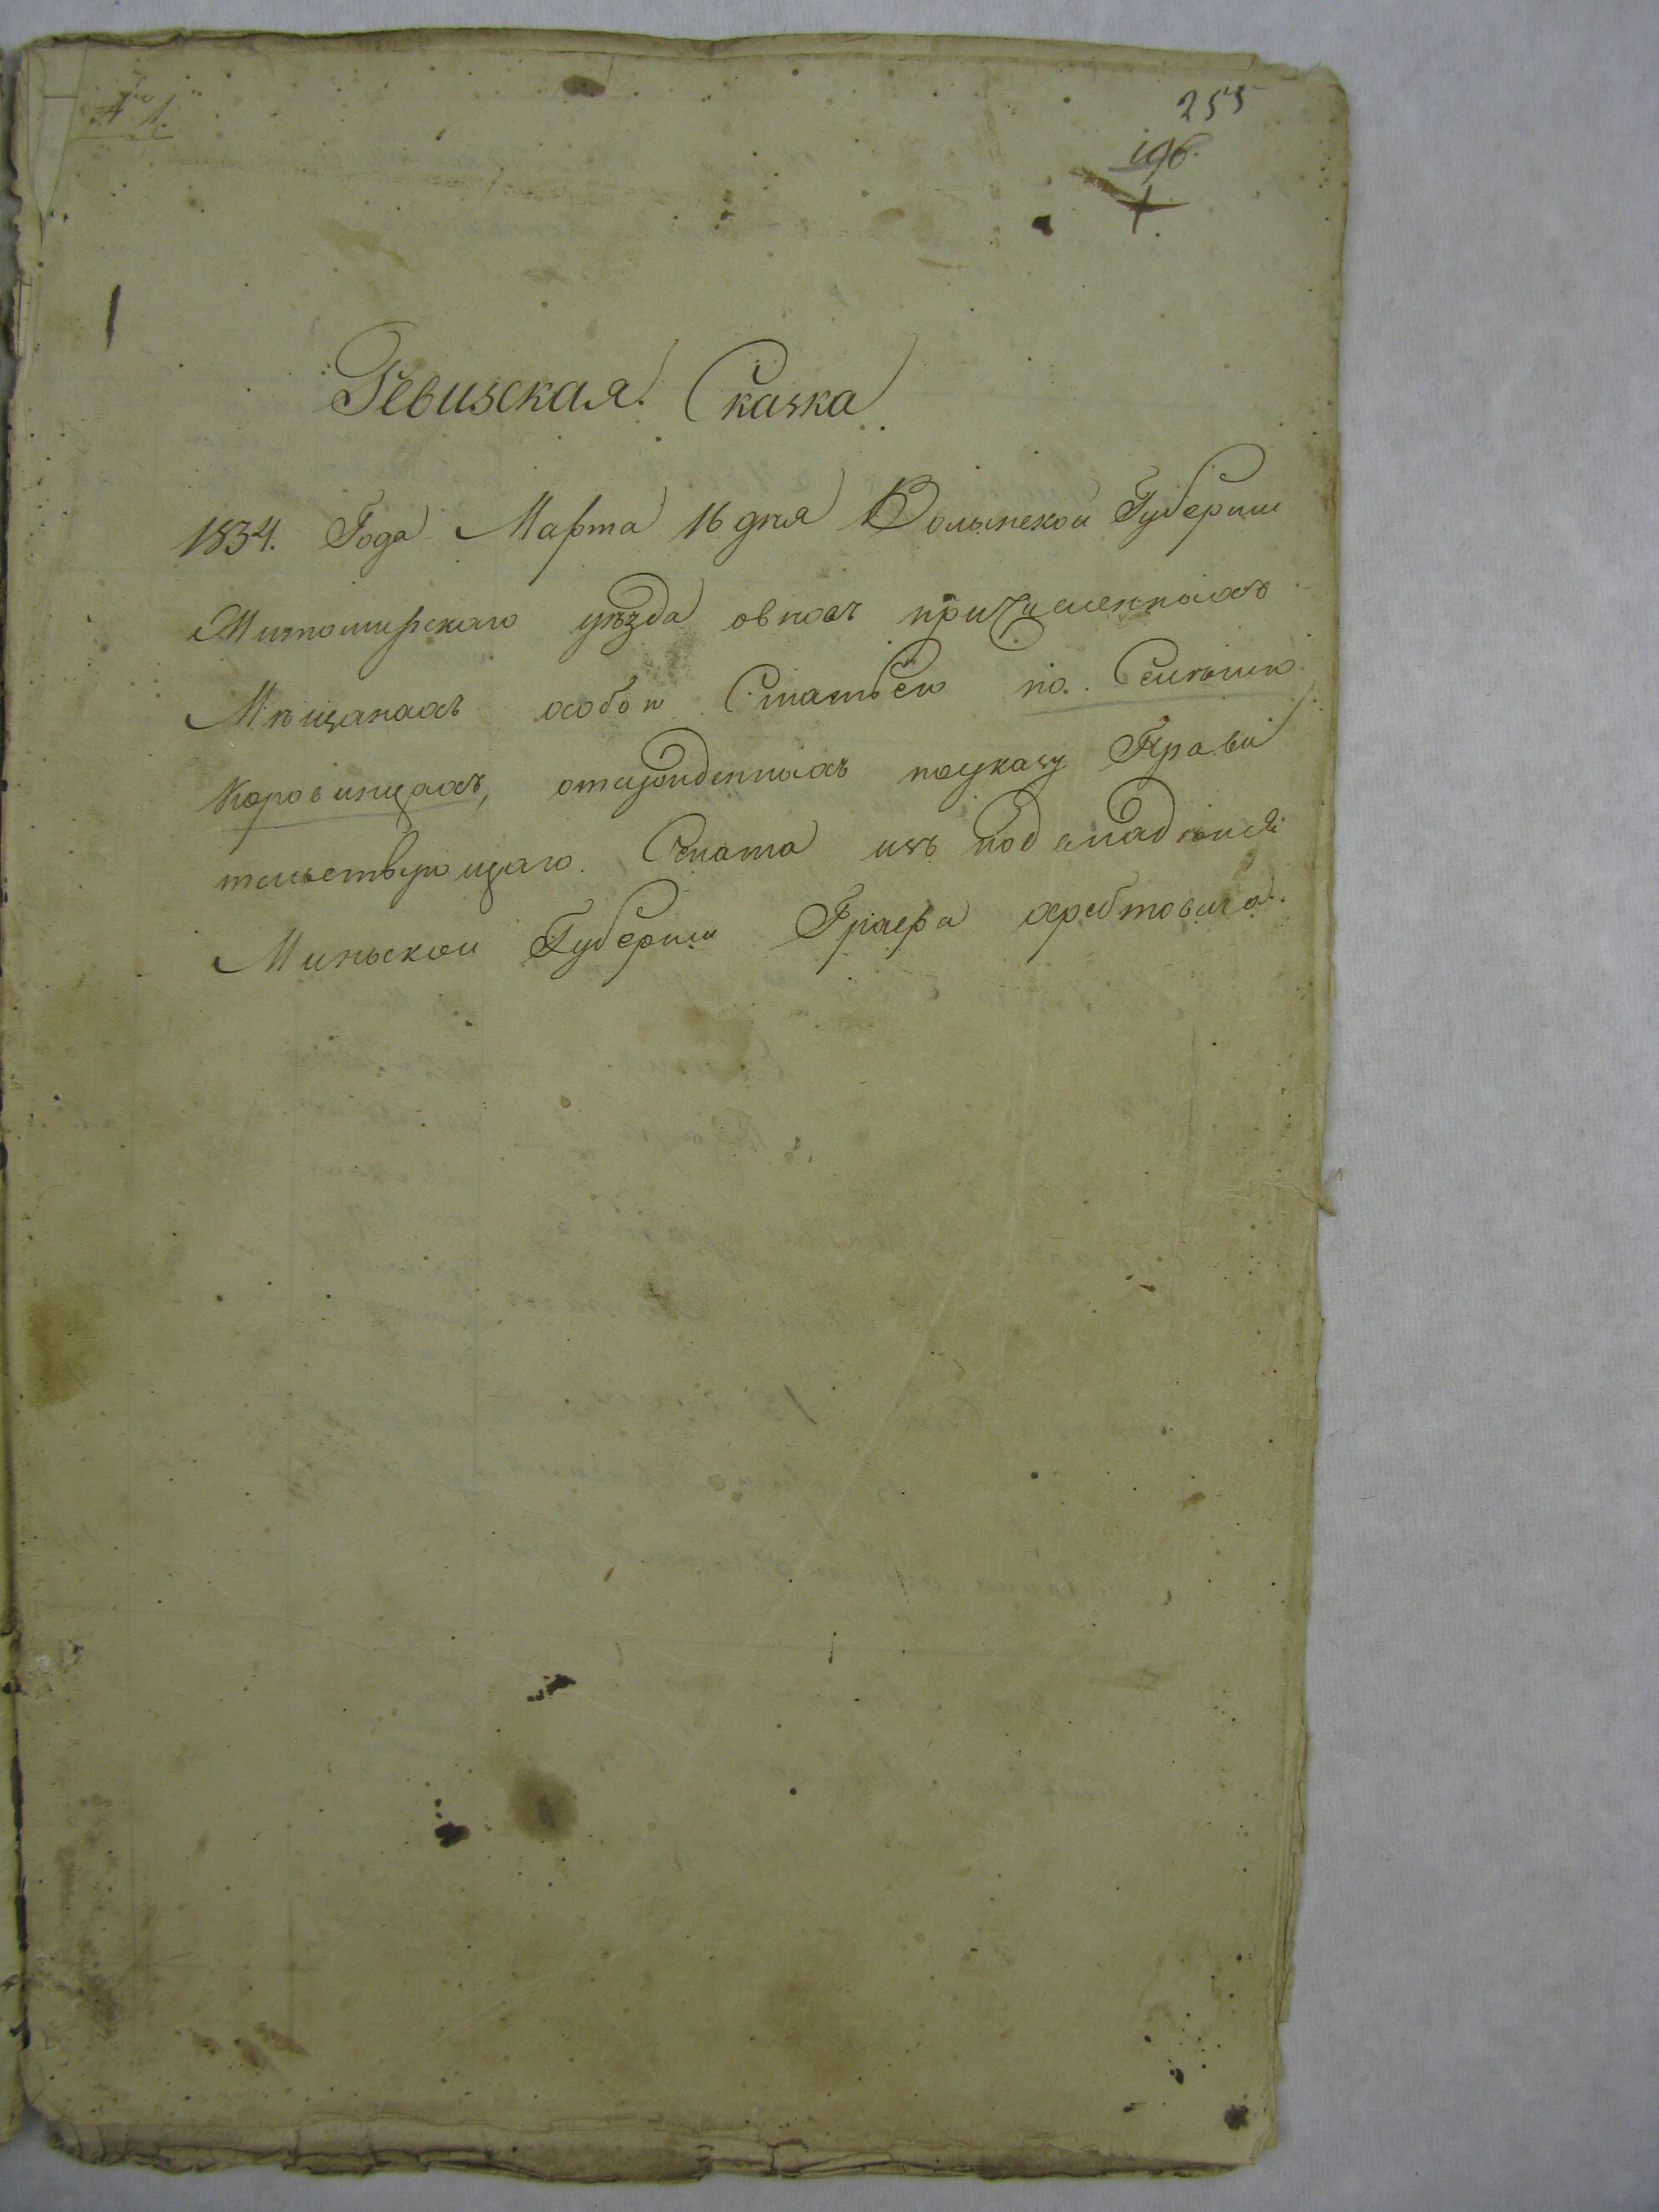 № 1.
255
196.
Ревизская Сказка
1834. Года Марта 16 дня Волынской Губернии
Житомирского уѣзда о вновь причисленныхъ
Мѣщанахъ особою Статьею по Сильнымъ
Коровинцахъ, отсужденныхъ по указу Прави
тельствующаго Сената изъ под владѣнія
Миньской Губернии Графа Хребтовича.